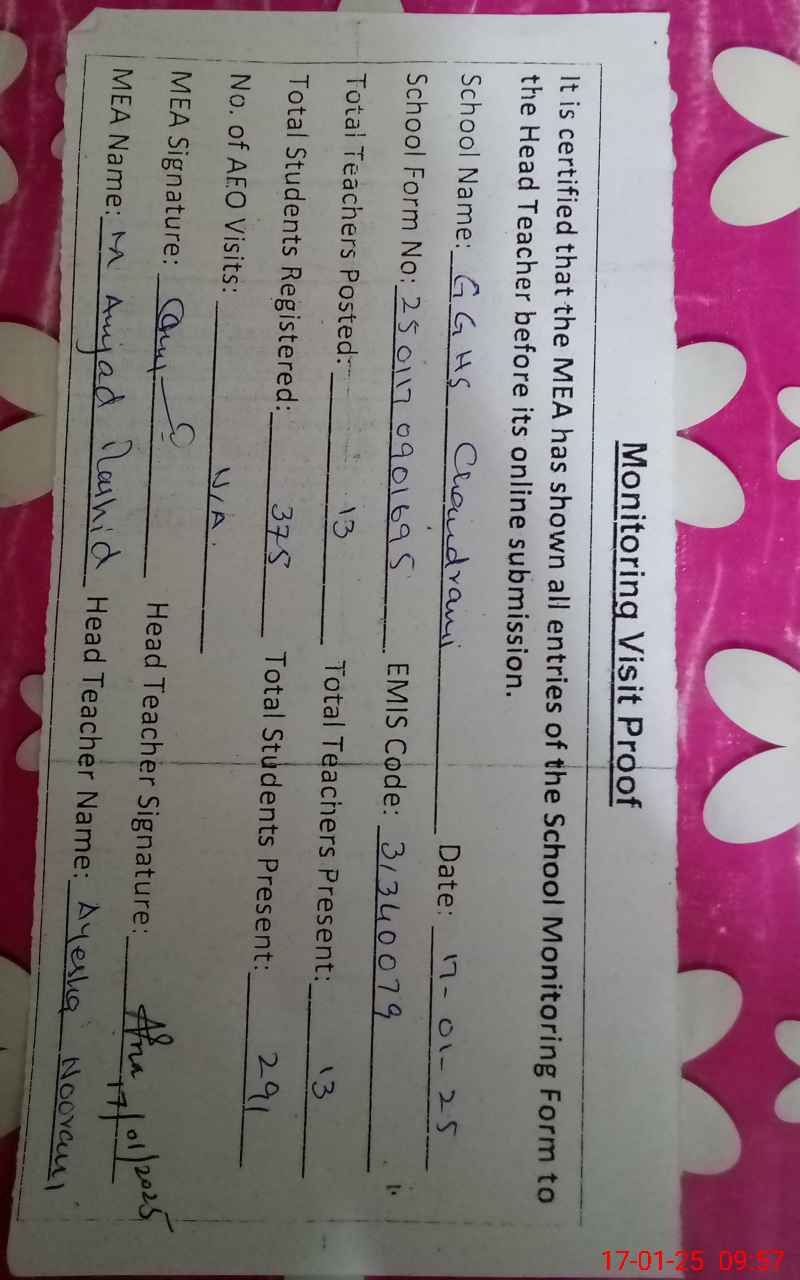 Monitoring Visit Proof
It is certified that the MEA has shown all entries of the School Monitoring Form to
the Head Teacher before its online submission.
School Name: GGHS Chandrami Date: 17-01-25
School Form No: 250117 0901695 EMIS Code: 31340079
Total Teachers Posted: 13 Total Teachers Present: 13
Total Students Registered: 375 Total Students Present: 291
No. of AEO Visits: N/A.
MEA Signature: Head Teacher Signature: 17/01/2025
MEA Name: M Amjad Rashid Head Teacher Name: Ayesha Noorani
17-01-25 09:57